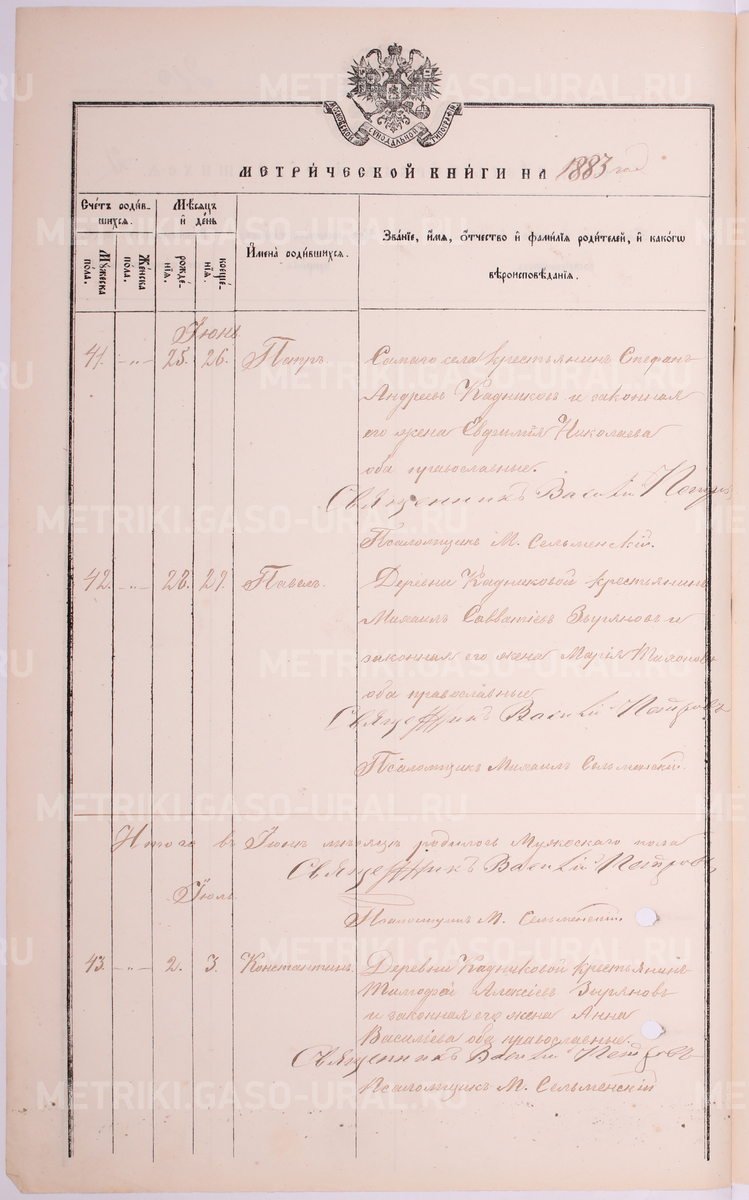 МОСКОВСКОЙ СѴНОДАЛЬНОЙ ТИПОГРАФІИ
МЕТРИ́ЧЕСКОЙ КНИ́ГИ НА 1883 год
Счётъ роди́в-
шихся.
Мѣ́сяцъ
и де́нь
Му́жеска
по́ла.
Же́нска
по́ла.
рожде́-
нія.
креще́-
нія.
Имена̀ роди́вшихся.
Зва́ніе, и́мя, о́тчество и фами́лія роди́телей, и како́гѡ
вѣроисповѣ́данія.
Іюнь
41. -„- 25. 26. Петръ Самаго села крестьянинъ Стефанъ
Андреевъ Кадниковъ и законная
его жена Евфимія Николаева
оба православные.
Священникъ Василій Петровъ
Псаломщикъ М. Сельменскій.
42. -„- 28. 29. Павелъ. Деревни Кадниковой крестьянинъ
Михаилъ Савватіевъ Зыряновъ и
законная его жена Марія
оба православные
Священникъ Василій Петровъ
Псаломщикъ Михаилъ Сельменскій.
Итого въ Іюнѣ мѣсяцѣ родилось Мужескаго пола
Священникъ Василій Петровъ
Іюль
Псаломщикъ М. Сельменскій.
43. -„- 2. 3. Константинъ. Деревни Кадниковой крестьянинъ
Тимофей Алексѣевъ Зыряновъ
и законная его жена Анна
Василіева оба православные.
Священникъ Василій Петровъ
Псаломщикъ М. Сельменскій
METRIKI.GASO-URAL.RU